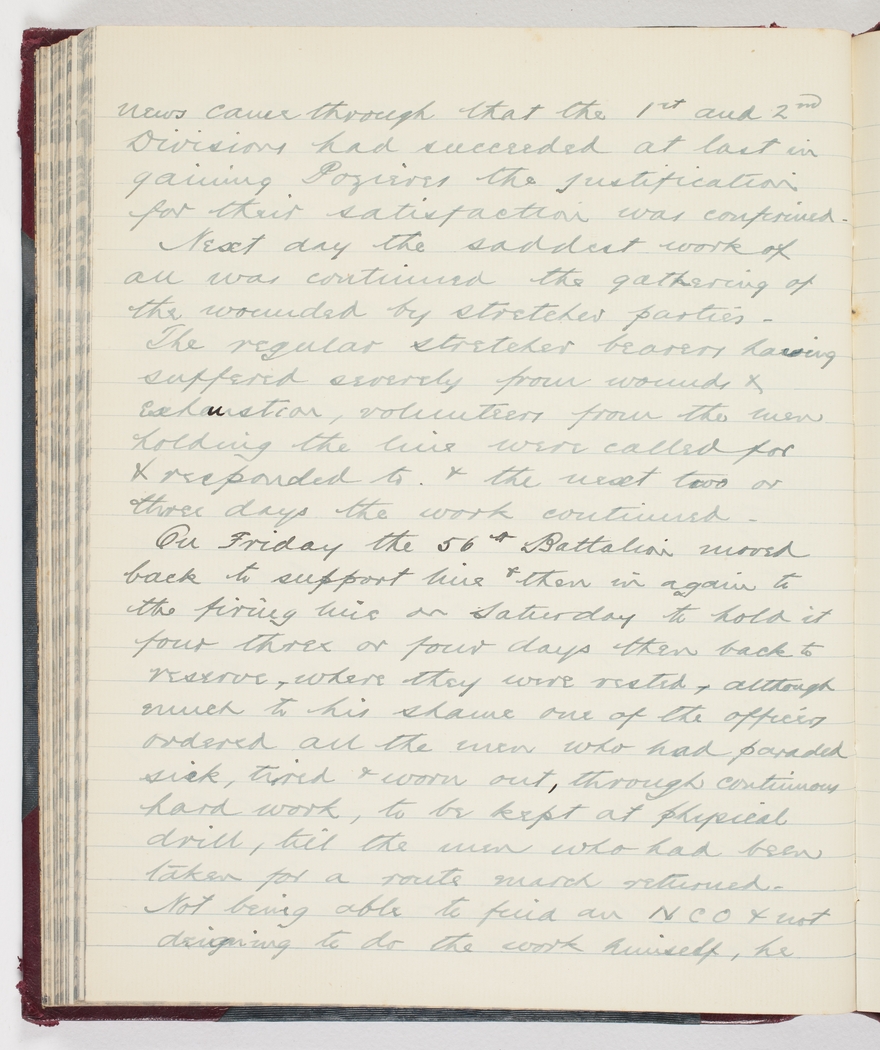 news came through that the 1st and 2nd
Divisions had succeeded at last in
gaining Pozieres the justification
for their satisfaction was confirmed.
Next day the saddest work of
all was continued the gathering of
the wounded by stretcher parties.
The regular stretcher bearers having
suffered severely from wounds &
exhaustion, volunteers from the men
holding the line were called for
& responded to. & the next two or
three days the work continued.
On Friday the 56th Battalion moved
back to support line & then in again to
the firing line on Saturday to hold it
four three or four days then back to
reserve, where they were rested, although
much to his shame one of the officers
ordered all the men who had paraded
sick, tired & worn out, through continuous
hard work, to be kept at physical
drill, till the men who had been
taken for a route march returned.
Not being able to find an NCO & not
deigning to do the work himself, he